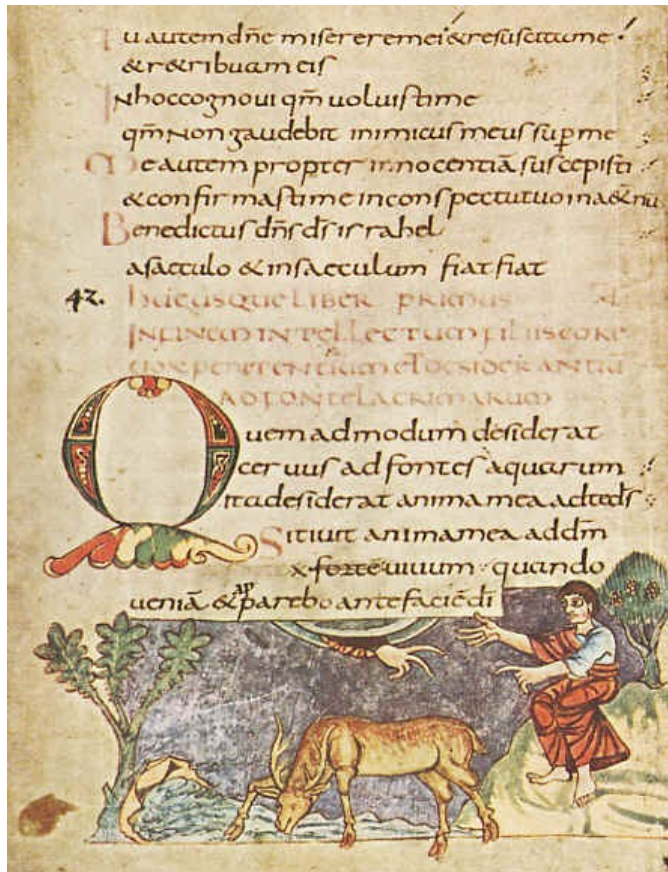 Tu autem dn̄e miserere mei & resuscitame
& r&ribuam eis
In hoc cognoui qm̄ uoluistime
qm̄ non gaudebit inimicus meus sup̄ me
Me autem propter innocentiā suscepisti
& confirmastime inconspectutuo in a&nū
Benedictus dn̄s ds̄ israhel
asaeculo & insaeculum fiat fiat
42. hucusque LIBER PRIMUS
IN FINEM INTELLECTUM FILIIS CORE
UOX PENETENTIUM ET DESIDERANTIŪ
AD FONTE LACRIMARUM
Quemadmodum desiderat
ceruus ad fontes aquarum
ita desiderat anima mea adteds̄
Sitiuit animamea addm̄
fortē uiuum quando
ueniā & apparebo ante faciē dī